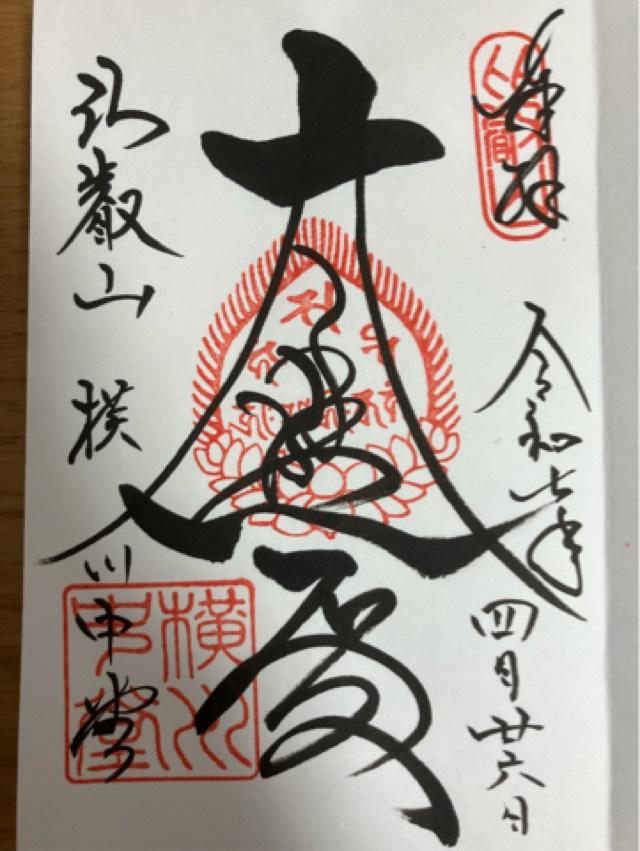 奉拝
令和七年四月廿六日
大悲殿
比叡山 横川中堂
横川
中堂